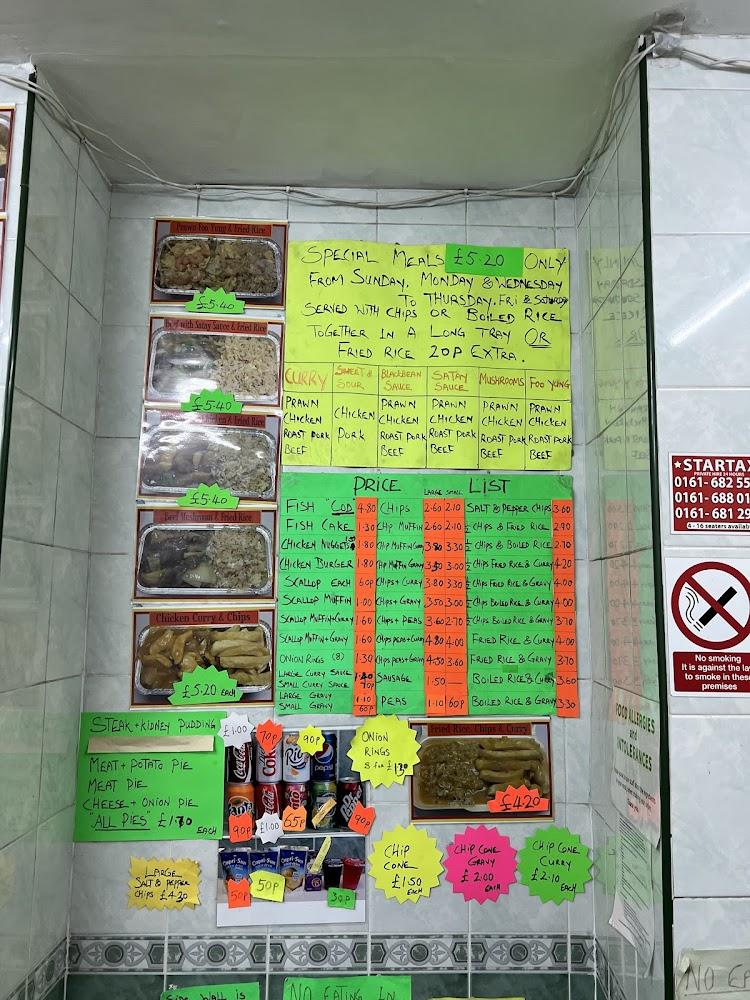 Prawn Foo Yung & Fried Rice
£5.40
Beef with Satay Sauce & Fried Rice
£5.40
& Fried Rice
£5.40
Beef Mushroom & Fried Rice
Chicken Curry & Chips
£5.20 EACH
SPECIAL MEALS £5.20 ONLY
FROM SUNDAY, MONDAY & WEDNESDAY
TO THURSDAY, FRI & SATURDAY
SERVED WITH CHIPS OR BOILED RICE
TOGETHER IN A LONG TRAY OR
FRIED RICE 20P EXTRA.
CURRY SWEET & SOUR BLACKBEAN SAUCE SATAY SAUCE MUSHROOMS FOO YUNG
PRAWN CHICKEN PRAWN PRAWN PRAWN PRAWN
CHICKEN PORK CHICKEN CHICKEN CHICKEN CHICKEN
ROAST PORK ROAST PORK ROAST PORK ROAST PORK ROAST PORK
BEEF BEEF BEEF BEEF BEEF
PRICE LARGE SMALL LIST
FISH "COD 4.80 CHIPS 2.60 2.10 SALT & PEPPER CHIPS 3.60
FISH CAKE 1.30 CHIP MUFFIN 2.60 2.10 ½ CHIPS & FRIED RICE 2.90
CHICKEN NUGGETS 1.80 CHIP MUFFIN CURRY 3.80 3.30 ½ CHIPS & BOILED RICE 2.70
CHICKEN BURGER 1.80 CHIP MUFFIN GRAVY 3.50 3.00 ½ CHIPS FRIED RICE & CURRY 4.20
SCALLOP EACH 60P CHIPS + CURRY 3.80 3.30 ½ CHIPS FRIED RICE & GRAVY 4.00
SCALLOP MUFFIN 1.00 CHIPS + GRAVY 3.50 3.00 ½ CHIPS BOILED RICE & CURRY 4.00
SCALLOP MUFFIN + CURRY 1.60 CHIPS + PEAS 3.60 2.70 ½ CHIPS BOILED RICE & GRAVY 3.70
SCALLOP MUFFIN + GRAVY 1.60 CHIPS PEAS + CURRY 4.80 4.00 FRIED RICE & CURRY 4.00
ONION RINGS (8) 1.30 CHIPS PEAS + GRAVY 4.50 3.60 FRIED RICE & GRAVY 3.70
LARGE CURRY SAUCE SAUSAGE 1.50 — BOILED RICE & CURRY 3.60
SMALL CURRY SAUCE 70P
LARGE GRAVY 1.10 PEAS 1.10 60P BOILED RICE & GRAVY 3.30
SMALL GRAVY 60P
STEAK + KIDNEY PUDDING £1.00
MEAT + POTATO PIE
MEAT PIE
CHEESE + ONION PIE
"ALL PIES" £1.70 EACH
70p
90p
pepsi
90p
£1.00
65p
90p
ONION
RINGS
8 for £1.30
Fried Rice, Chips & Curry
£4.20
Capri-Sun
Capri-Sun
Capri-Sun
50p
50p
30p
LARGE
SALT & PEPPER
CHIPS £4.30
CHIP
CONE
£1.50
EACH
CHIP CONE
GRAVY
£2.00
EACH
CHIP CONE
CURRY
£2.10
EACH
STARTAX
PRIVATE HIRE 24 HOURS
0161- 682 55
0161- 688 01
0161- 681 29
4 - 16 seaters available
No smoking
It is against the law
to smoke in these
premises
FOOD ALLERGIES
and
INTOLERANCES
SIDE WALL IS
NO EATING IN
NO EA